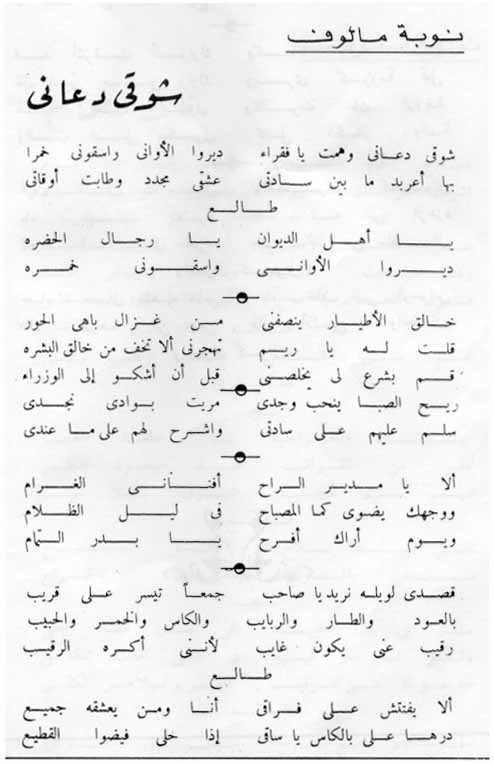 نوبة مالوف
شوقى دعانى
شوقى دعانى وهمت يا فقراء ديروا الأوانى واسقونى خمرا
بها أعربد ما بين سادتى عشقى مجدد وطابت أوقاتى
طالع
يا أهل الديوان يا رجال الحضره
ديروا الأوانى واسقونى خمره
خالق الأطيار ينصفنى من غزال باهى الحور
قلت له يا ريم تهجرنى ألا تخف من خالق البشره
قم بشرع لى يخلصنى قبل أن أشكو إلى الوزراء
ريح الصبا ينحب وجدى مريت بوادى نجدى
سلم عليهم على سادتى واشرح لهم على ما عندى
ألا يا مدير الراح أفنانى الغرام
ووجهك يضوى كما المصباح فى ليل الظلام
ويوم أراك أفرح يا بدر التمام
قصدى لويله نريد يا صاحب جمعاً تيسر على قريب
بالعود والطار والربايب والكاس والخمر والحبيب
رقيب عنى يكون غايب لأننى أكره الرقيب
طالع
ألا يفتتش على فراقى أنا ومن يعشقه جميع
درها على بالكاس يا ساقى إذا خلى فيضوا القطيع